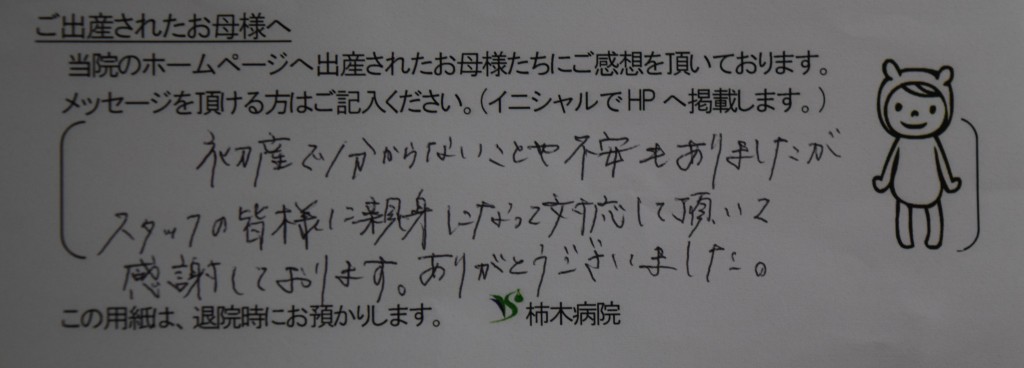 ご出産されたお母様へ
当院のホームページへ出産されたお母様たちにご感想を頂いております。
メッセージを頂ける方はご記入ください。（イニシャルでHPへ掲載します。）
初産で分からないことや不安もありましたが
スタッフの皆様に親身になって対応して頂いて
感謝しております。ありがとうございました。
この用紙は、退院時にお預かりします。 柿木病院